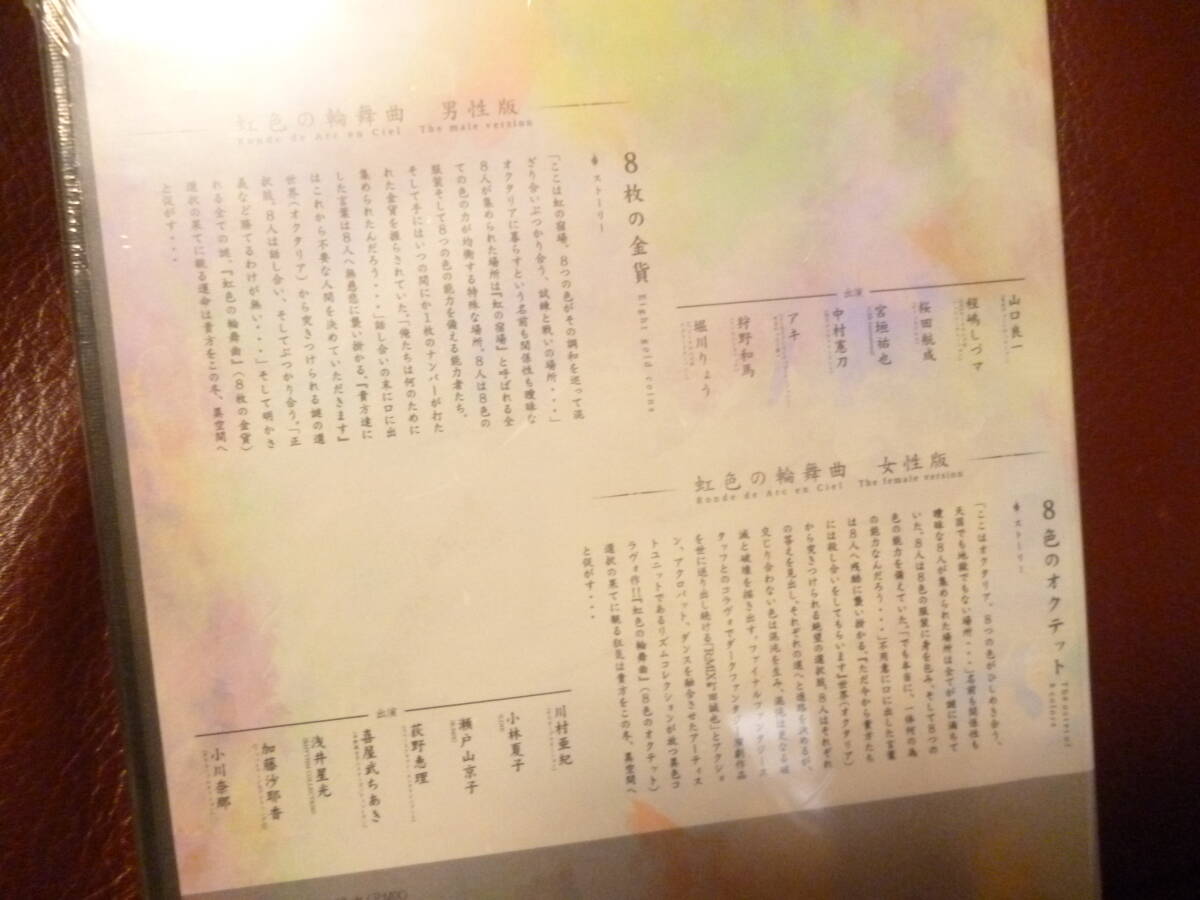 虹色の輪舞曲　男性版
Ronde de Arc en Ciel　The male version
8枚の金貨
Eight gold coins
ストーリー
「ここは虹の宿場。8つの色がその調和を巡って混
ざり合いぶつかり合う、試練と戦いの場所・・・」
オクタリアに暮らすという名前も関係性も曖昧な
8人が集められた場所は『虹の宿場』と呼ばれる全
ての色の力が均衡する特殊な場所。8人は8色の
服装そして8つの色の能力を備える能力者たち。
そして手にはいつの間にか1枚のナンバーが打た
れた金貨を握らされていた。「俺たちは何のために
集められたんだろう・・・」話し合いの末に口に出
した言葉は8人へ無慈悲に襲い掛かる。『貴方達に
はこれから不要な人間を決めていただきます』
世界（オクタリア）から突きつけられる謎の選
択肢。8人は話し合い、そしてぶつかり合う。「正
義など勝てるわけが無い・・・」そして明かさ
れる全ての謎。『虹色の輪舞曲』（8枚の金貨）
選択の果てに観る運命は貴方をこの冬、異空間へ
と促がす・・・
出演
山口良一
桜田航成
宮垣祐也
中村憲刀
アキ
狩野和馬
堀川りょう
虹色の輪舞曲　女性版
Ronde de Arc en Ciel　The female version
8色のオクテット
ストーリー
「ここはオクタリア。8つの色がひしめき合う、
天国でも地獄でもない場所・・・」名前も関係性も
曖昧な8人が集められた場所は全てが謎に満ちて
いた。8人は8色の服装に身を包み、そして8つの
色の能力を備えていた。「でも本当に、一体何の為
の能力なんだろう・・・」不用意に口に出した言葉
は8人へ残酷に襲い掛かる。『ただ今から貴方たち
には殺し合いをしてもらいます』世界（オクタリア）
から突きつけられる絶望の選択肢。8人はそれぞれ
の答えを見出し、それぞれの道へと進路を決めるが、
交じり合わない色は混沌を生み、混沌は更なる破
滅と破壊を描き出す。ファイナルファンタジース
タッフとのコラヴォでダークファンタジー演劇作品
を世に送り出し続ける「RMIX町田誠也」とアクショ
ン、アクロバット、ダンスを融合させたアーティス
トユニットであるリズムコレクションが放つ異色コ
ラヴォ作!!『虹色の輪舞曲』（8色のオクテット）
選択の果てに観る狂気は貴方をこの冬、異空間へ
と促がす・・・
出演
川村亜紀
小林夏子
瀬戸山京子
荻野恵理
喜屋武ちあき
浅井星光
加藤沙耶香
小川奈那